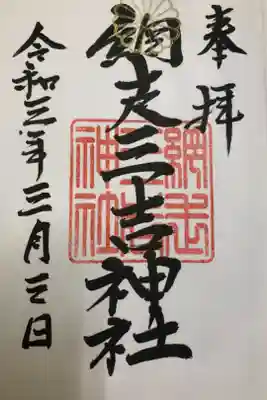 奉拝
網走三吉神社
令和三年三月三日
網走
三吉
神社